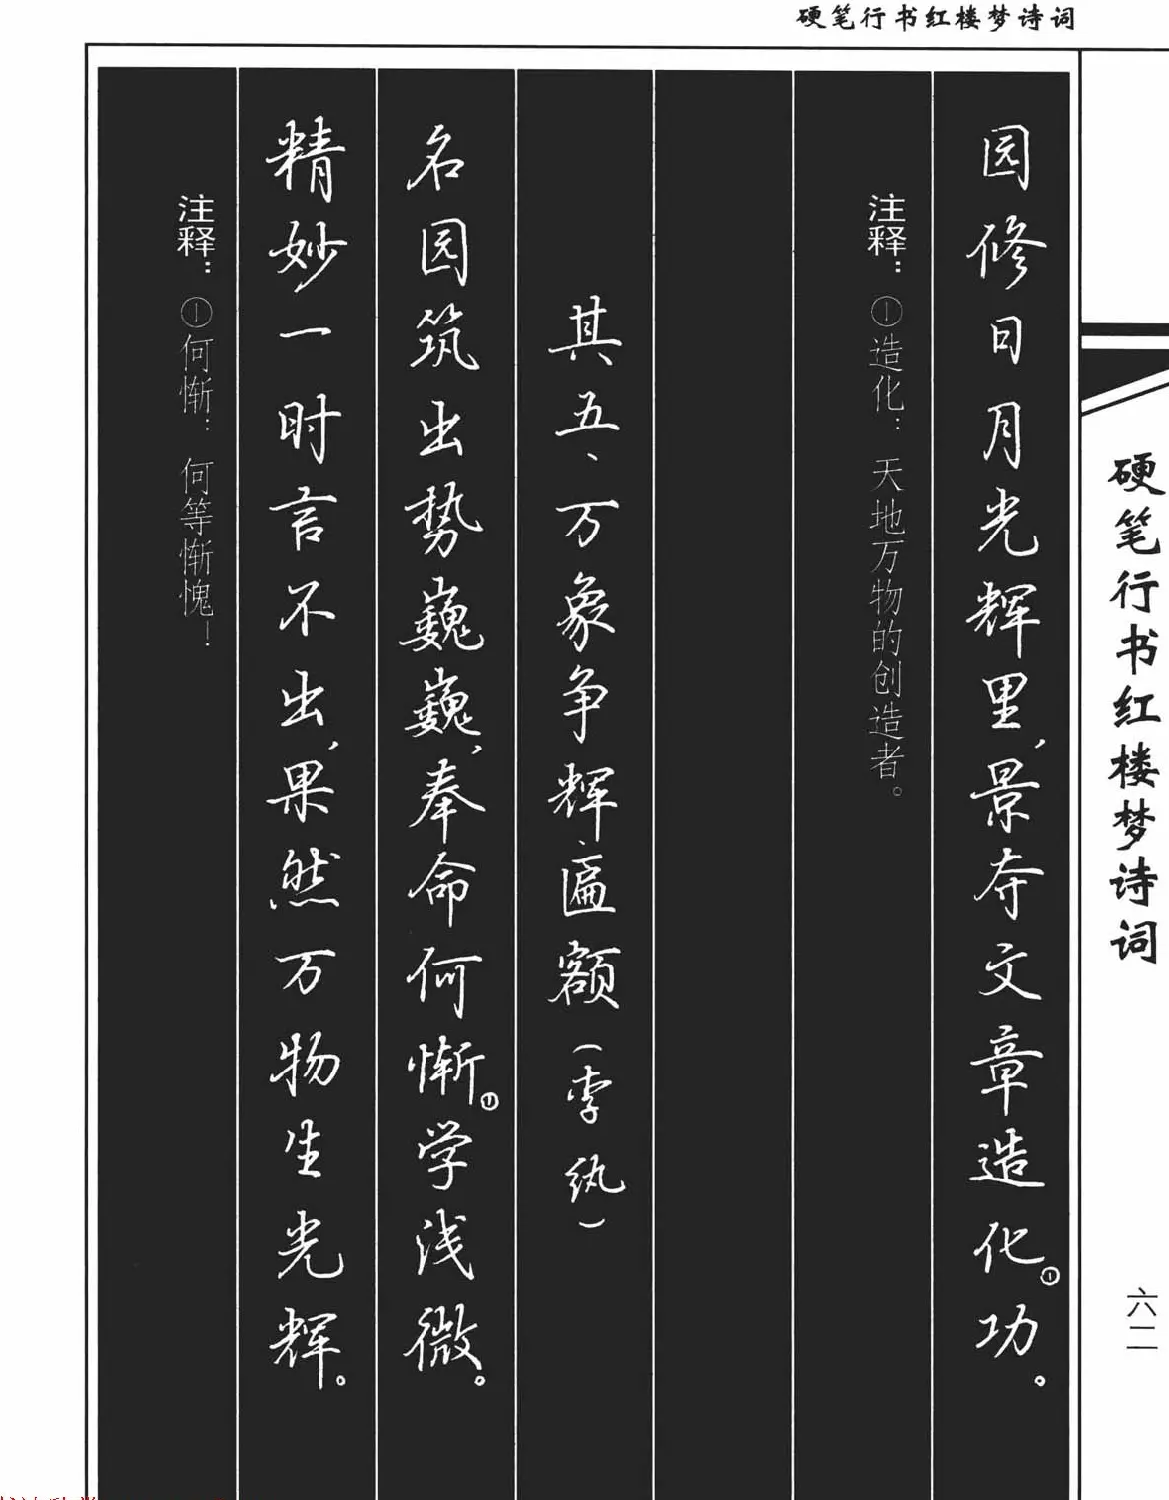 硬笔行书红楼梦诗词
园修日月光辉里,景夺文章造化①功。
注释:①造化:天地万物的创造者。
其五、万象争辉匾额(李纨)
名园筑出势巍巍,奉命何惭①学浅微。
精妙一时言不出,果然万物生光辉。
注释:①何惭:何等惭愧!
硬笔行书红楼梦诗词
六二